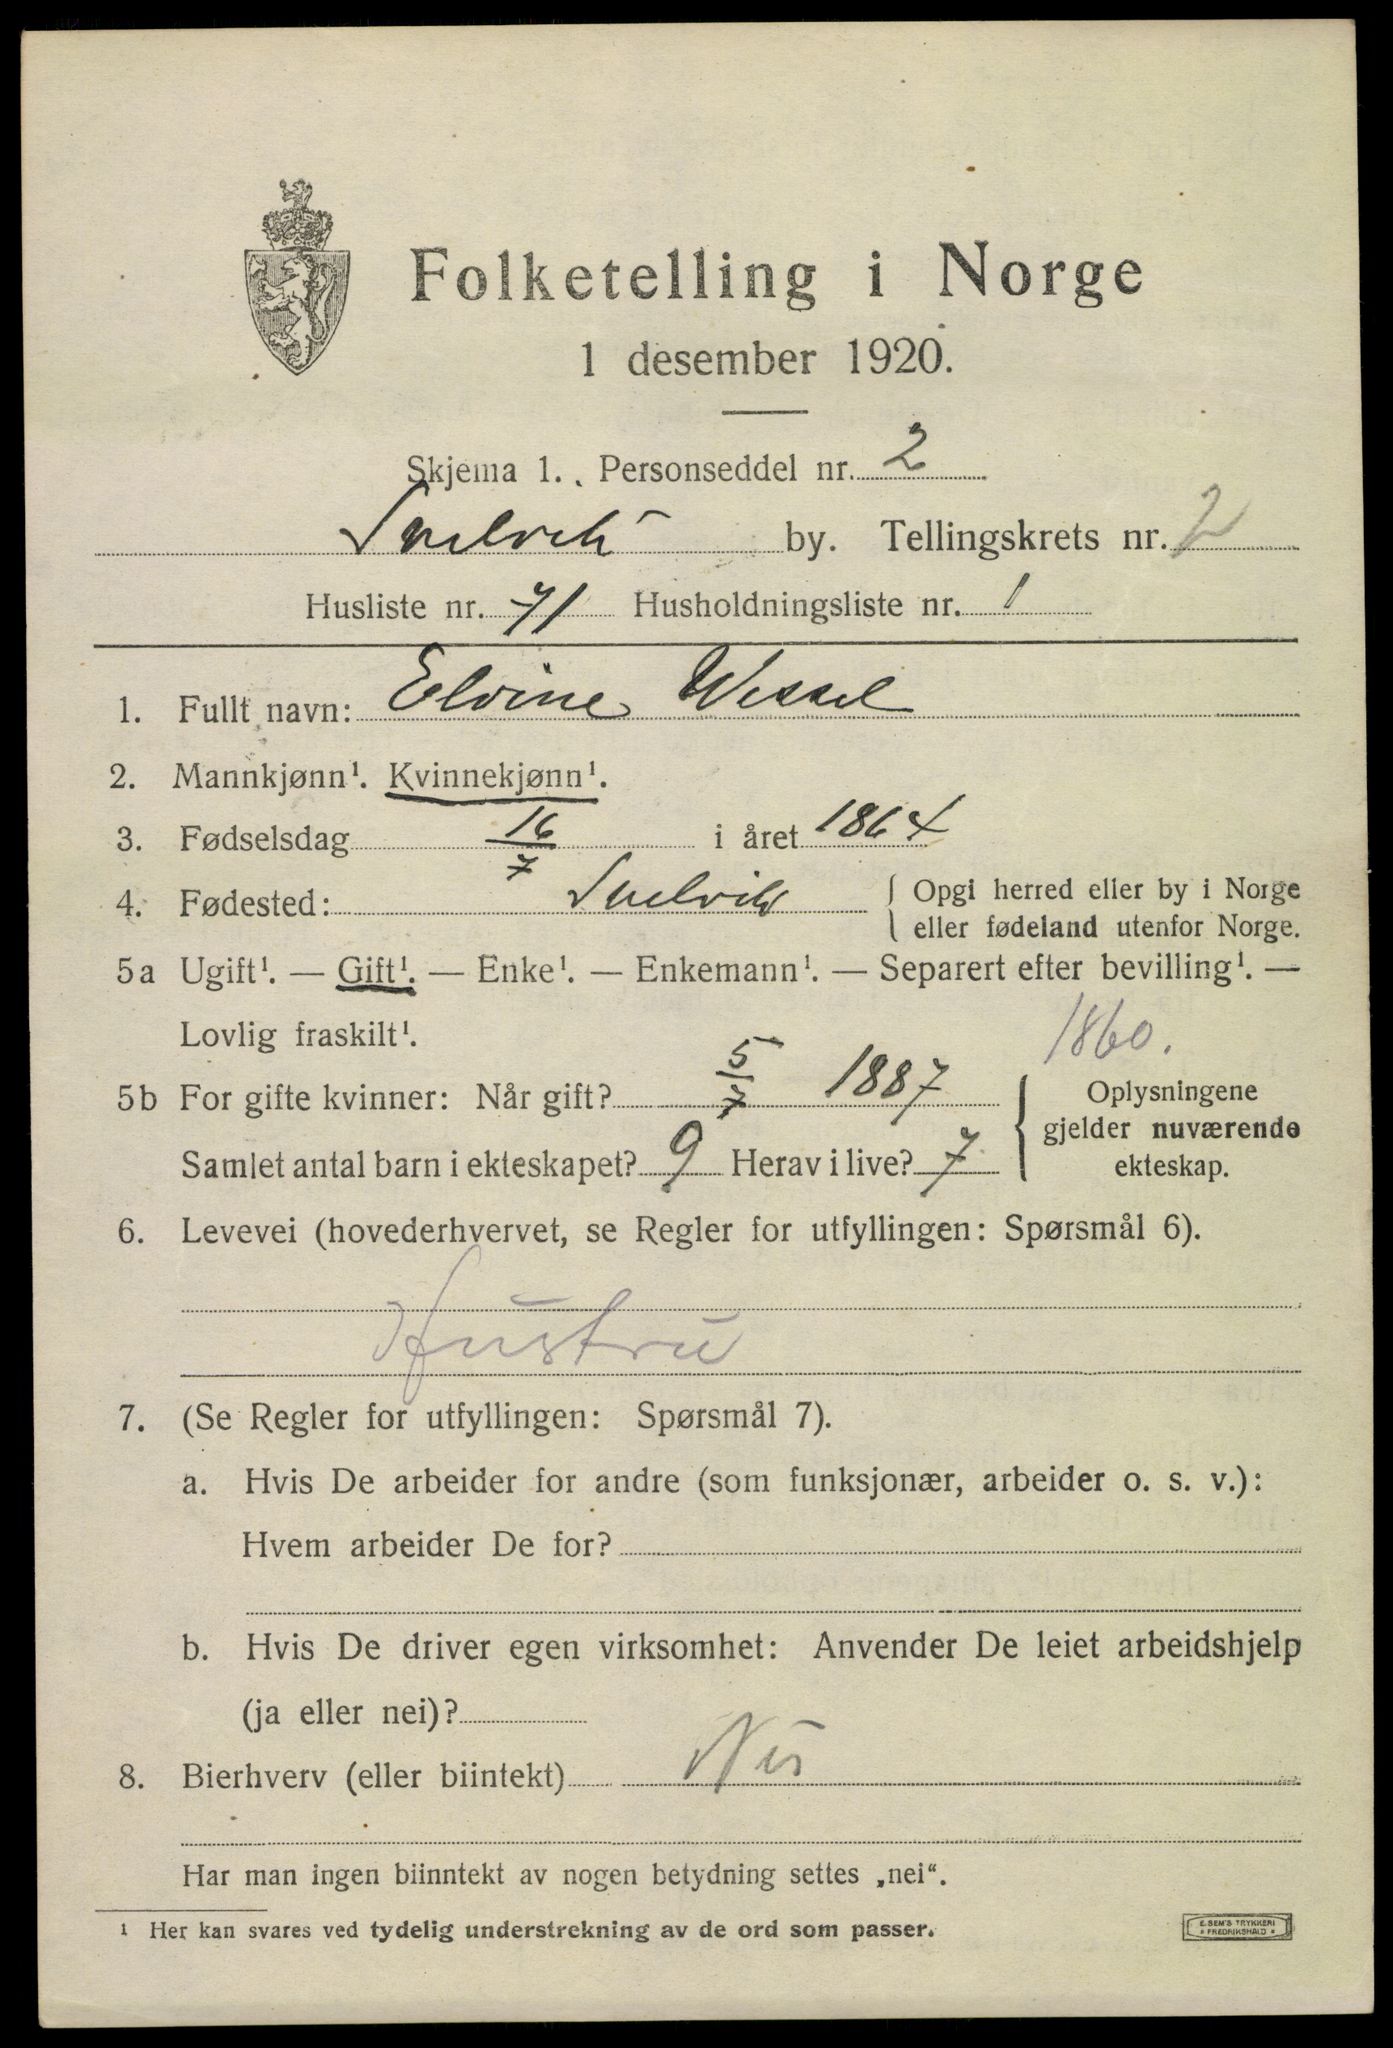 Folketelling i Norge
1 desember 1920.
Skjema 1. Personseddel nr. 2
Svelvik by. Tellingskrets nr. 2
Husliste nr. 71 Husholdningsliste nr. 1
1. Fullt navn: Elvine Wessel
2. Mannkjønn¹. Kvinnekjønn¹.
3. Fødselsdag 16/7 i året 1864
4. Fødested: Svelvik { Opgi herred eller by i Norge
eller fødeland utenfor Norge.
5a Ugift¹. — Gift¹. — Enke¹. — Enkemann¹. — Separert efter bevilling¹. —
Lovlig fraskilt¹.
1860.
5b For gifte kvinner: Når gift? 5/7 1887
Samlet antal barn i ekteskapet? 9 Herav i live? 7
Oplysningene
gjelder nuværende
ekteskap.
6. Levevei (hovederhvervet, se Regler for utfyllingen: Spørsmål 6).
Hustru
7. (Se Regler for utfyllingen: Spørsmål 7).
a. Hvis De arbeider for andre (som funksjonær, arbeider o. s. v.):
Hvem arbeider De for?
b. Hvis De driver egen virksomhet: Anvender De leiet arbeidshjelp
(ja eller nei)?
8. Bierhverv (eller biintekt) Nei
Har man ingen biinntekt av nogen betydning settes „nei“.
¹ Her kan svares ved tydelig understrekning av de ord som passer.
E. SEM'S TRYKKERI
* FREDRIKSHALD *